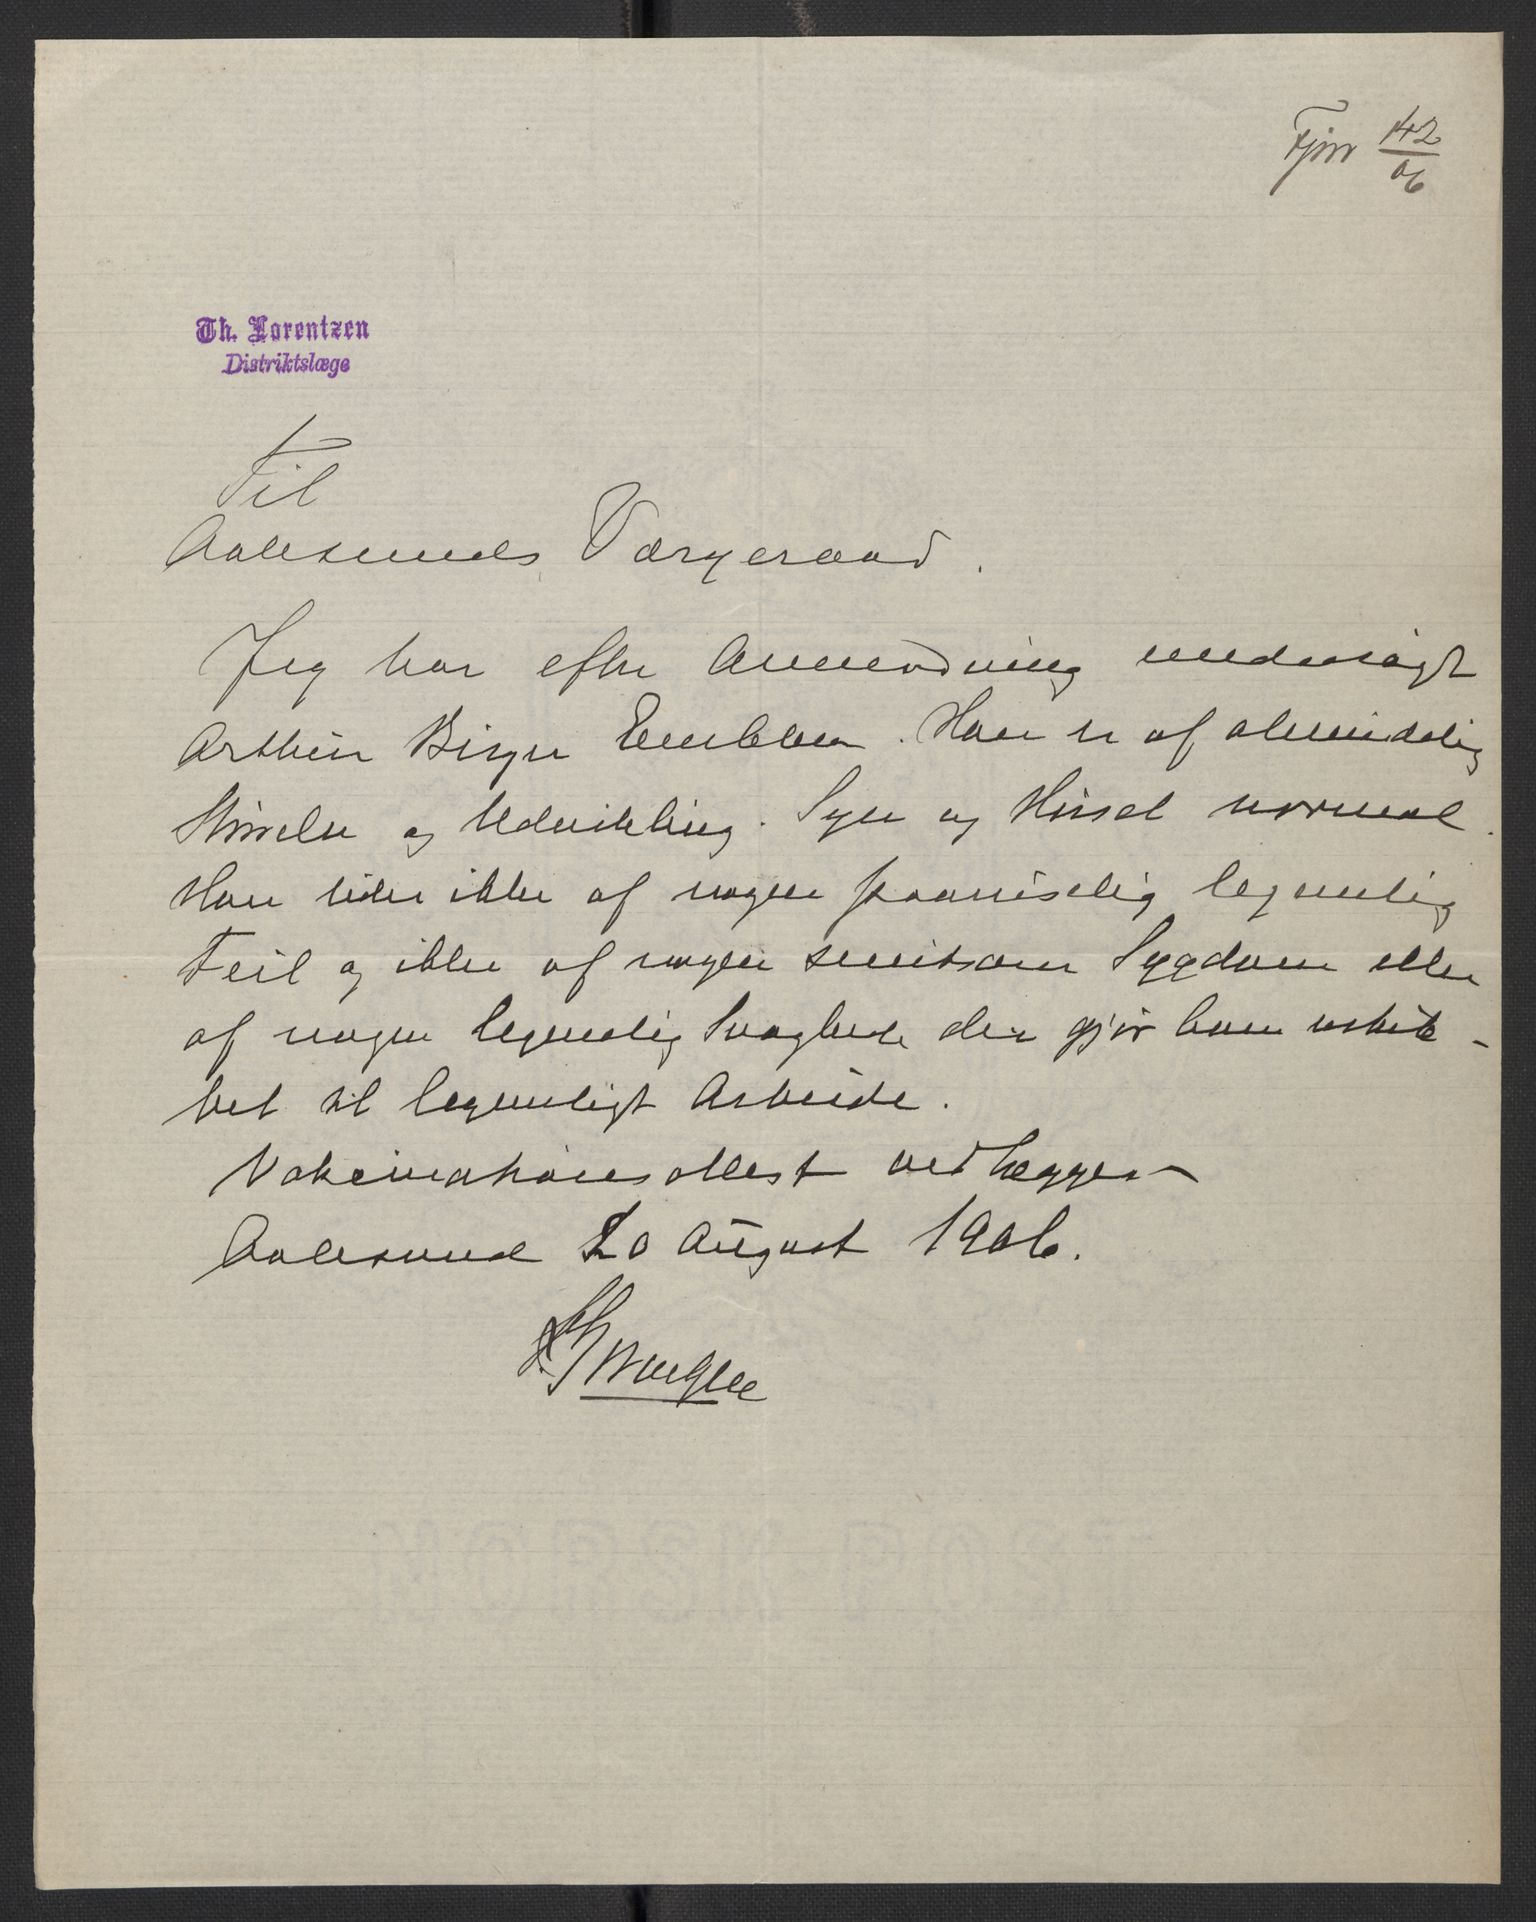 42
06
Th. Lorentzen
Distriktslæge
Til
Aalesunds Værgeraad.
Jeg har efter Anmodning undersøgt
Arthur Birger Emblem. Han er af almindelig
Størrelse og Udvikling. Syn og Hørsel normal.
Han lider ikke af nogen paaviselig legemlig
Feil og ikke af nogen smitsom Sygdom eller
af nogen legemlig Svaghed der gjør ham uskik-
ket til legemligt Arbeide.
Vakcinationsattest vedlægges
Aalesund 20 August 1906.